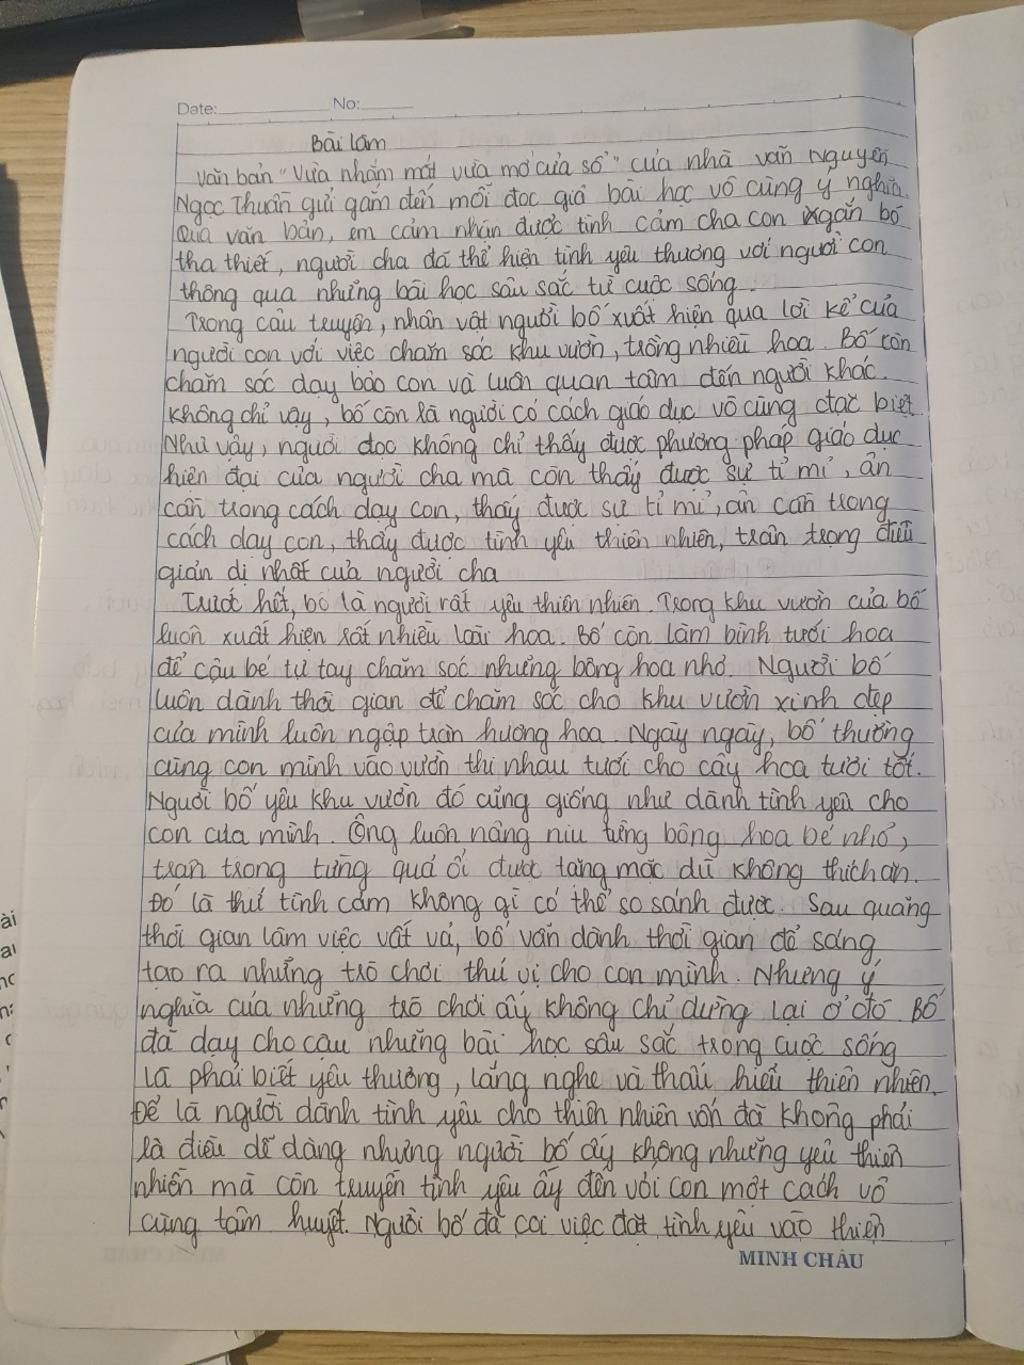 Date: No:
Bài làm
Văn bản "Vừa nhắm mắt vừa mở cửa sổ" của nhà văn Nguyễn
Ngọc Thuần gửi gắm đến mỗi đọc giả bài học vô cùng ý nghĩa.
Qua văn bản, em cảm nhận được tình cảm cha con gắn bó
tha thiết, người cha đã thể hiện tình yêu thương với người con
thông qua những bài học sâu sắc từ cuộc sống.
Trong câu truyện, nhân vật người bố xuất hiện qua lời kể của
người con với việc chăm sóc khu vườn, trồng nhiều hoa. Bố còn
chăm sóc dạy bảo con và luôn quan tâm đến người khác.
Không chỉ vậy, bố còn là người có cách giáo dục vô cùng đặc biệt
Như vậy, người đọc không chỉ thấy được phương pháp giáo dục
hiện đại của người cha mà còn thấy được sự tỉ mỉ, ân
cần trong cách dạy con, thấy được sự tỉ mỉ, ân cần trong
cách dạy con, thấy được tình yêu thiên nhiên, trân trọng điều
giản dị nhất của người cha
Trước hết, bố là người rất yêu thiên nhiên. Trong khu vườn của bố
luôn xuất hiện rất nhiều loài hoa. Bố còn làm bình tưới hoa
để cậu bé tự tay chăm sóc những bông hoa nhỏ. Người bố
luôn dành thời gian để chăm sóc cho khu vườn xinh đẹp
của mình luôn ngập tràn hương hoa. Ngày ngày, bố thường
cùng con mình vào vườn thi nhau tưới cho cây hoa tươi tốt.
Người bố yêu khu vườn đó cũng giống như dành tình yêu cho
con của mình. Ông luôn nâng niu từng bông hoa bé nhỏ,
trân trọng từng quả ổi được tặng mặc dù không thích ăn.
Đó là thứ tình cảm không gì có thể so sánh được. Sau quãng
thời gian làm việc vất vả, bố vẫn dành thời gian để sáng
tạo ra những trò chơi thú vị cho con mình. Nhưng ý
nghĩa của những trò chơi ấy không chỉ dừng lại ở đó. Bố
đã dạy cho cậu những bài học sâu sắc trong cuộc sống
là phải biết yêu thương, lắng nghe và thấu hiểu thiên nhiên.
Để là người dành tình yêu cho thiên nhiên vốn đã không phải
là điều dễ dàng nhưng người bố ấy không những yêu thiên
nhiên mà còn truyền tình yêu ấy đến với con một cách vô
cùng tâm huyết. Người bố đã coi việc đặt tình yêu vào thiên
MINH CHÂU